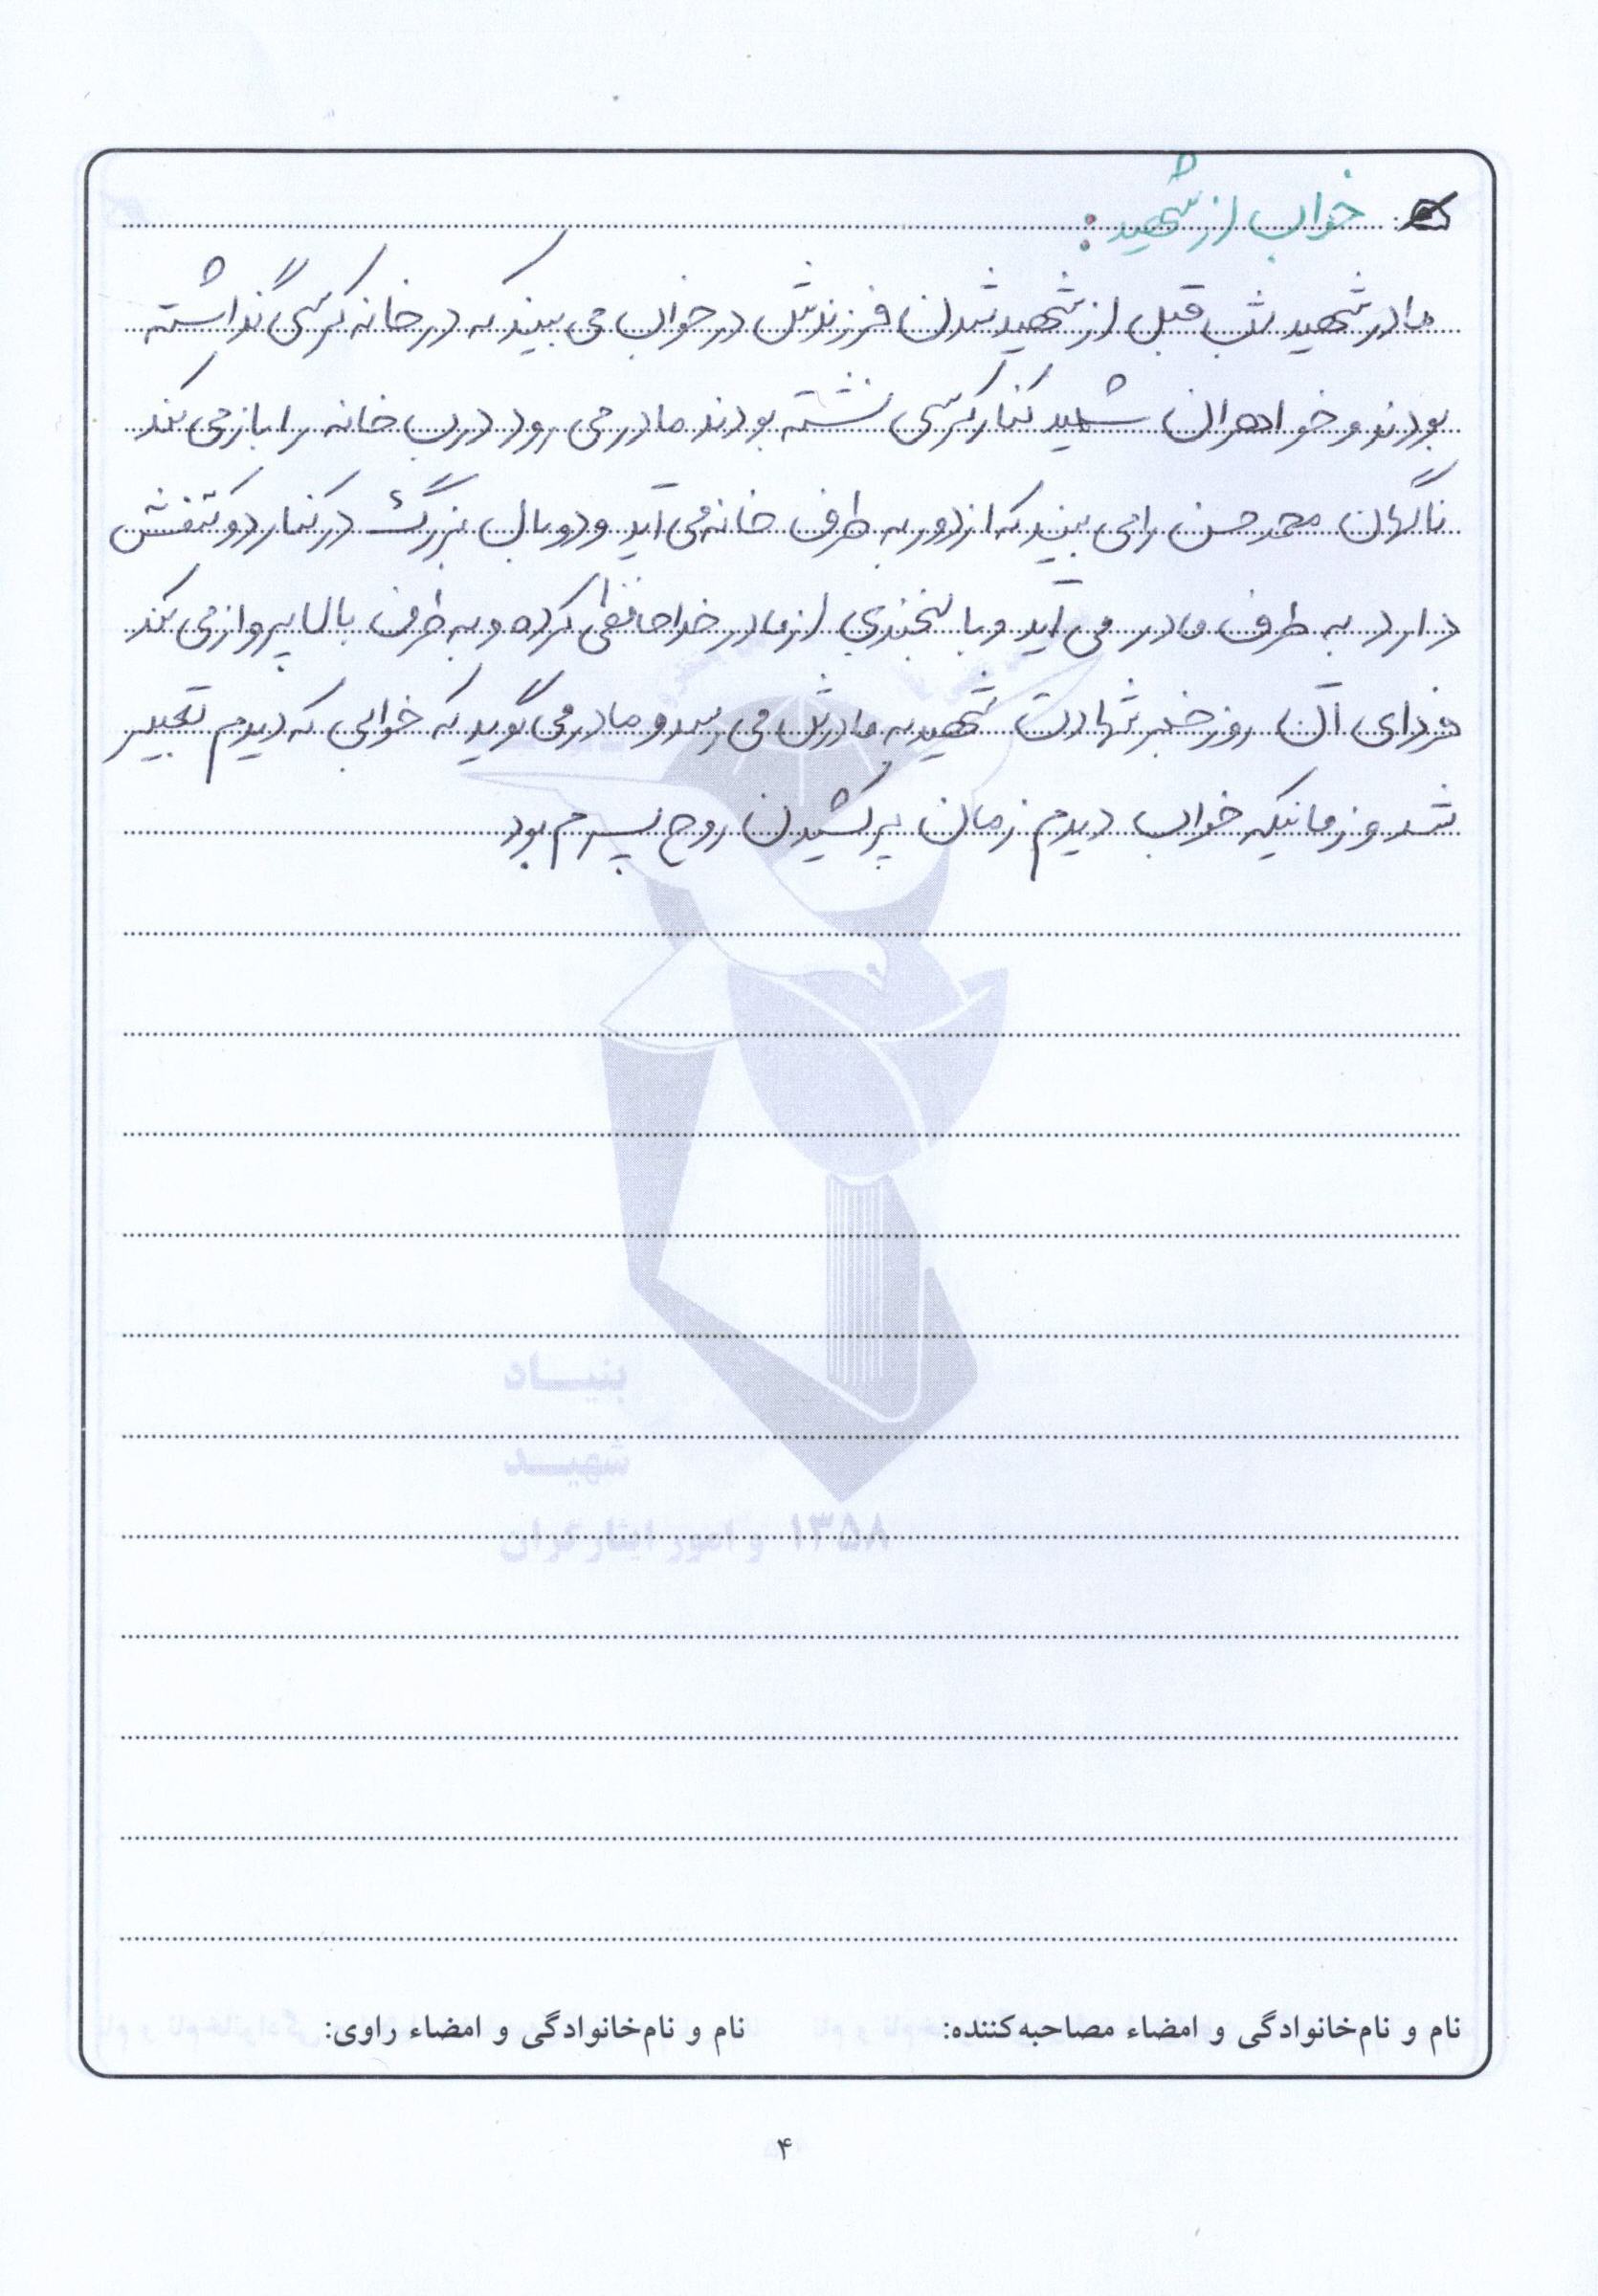 خواب از شهید:
مادر شهید شب قبل از شهید شدن فرزندش در خواب می بیند که در خانه کرسی گذاشته
بودند و خواهران شهید کنار کرسی نشته بودند مادر می رود درب خانه را باز می کند
ناگهان محمد حسن را می بیند که از دور به طرف خانه می آید و دو بال بزرگ در کنار دو کتفش
دارد به طرف مادر می آید و با لبخندی از مادر خداحافظی کرده و به طرف بالا پرواز می کند
فردای آن روز خبر شهادت شهید به مادرش می رسد و مادر می گوید که خوابی که دیدم تعبیر
شد و زمانیکه خواب دیدم زمان پر کشیدن روح پسرم بود
بنیاد
شهید
۱۳۵۸ و امور ایثارگران
نام و نام‌خانوادگی و امضاء مصاحبه‌کننده: نام و نام‌خانوادگی و امضاء راوی:
۴